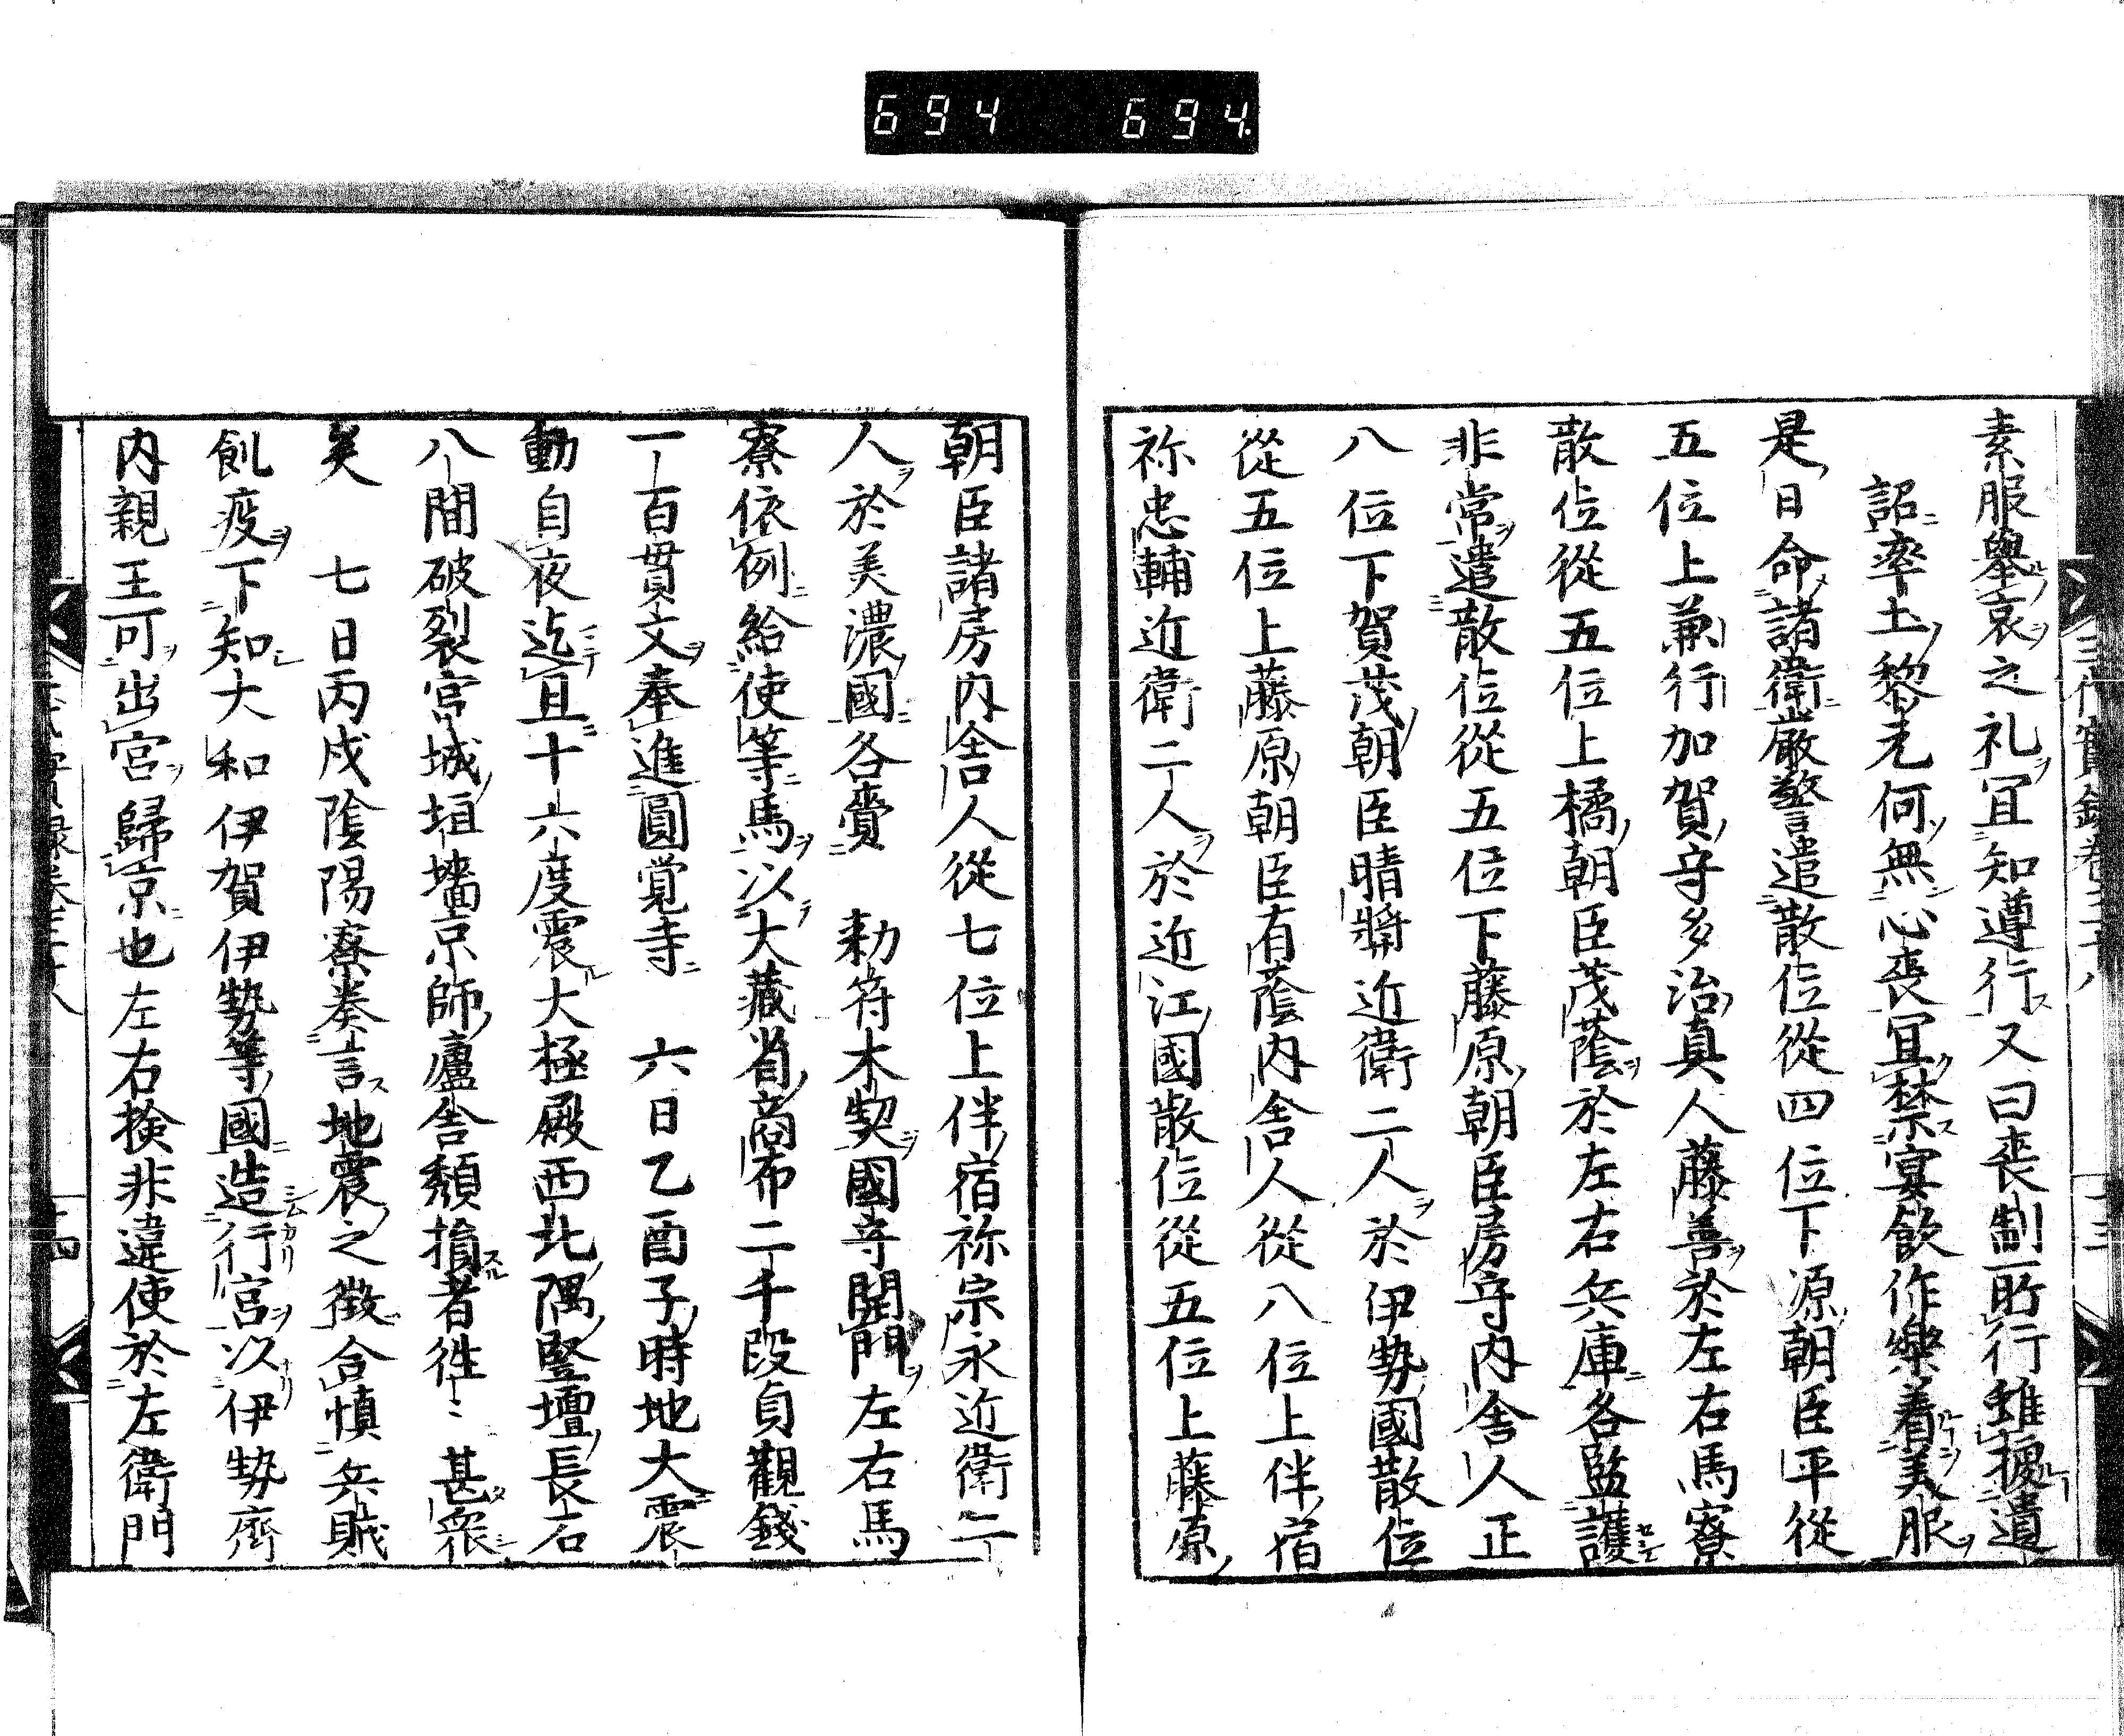 694 694.
素服擧哀之礼冝知遵行又曰喪制所行雖擾遺
詔率土黎元何無心喪冝禁宴飲作樂着美服
是日命諸衛嚴警遣散位從四位下源朝臣平從
五位上兼行加賀守多治真人藤善於左右馬寮
散位從五位上橘朝臣茂蔭於左右兵庫各監護
非常遣散位從五位下藤原朝臣房守内舍人正
八位下賀茂朝臣晴將近衛二人於伊勢國散位
從五位上藤原朝臣有蔭内舍人從八位上伴宿
祢忠輔近衛二人於近江國散位從五位上藤原
朝臣諸房内舍人從七位上伴宿祢宗永近衛二
人於美濃國各賫　勅符木契國守開門左右馬
寮依例給使等馬以大藏省商布二千段貞觀錢
一百貫文奉進圓覚寺　六日乙酉子時地大震
動自夜迄旦十六度震大極殿西北隅竪壇長石
八間破裂宮城垣墻京師廬舎頽損者徃〻甚衆
矣　七日丙戌陰陽寮奏言地震之徴合慎兵賊
飢疫下知大和伊賀伊勢等國造行宮以伊勢齊
内親王可出宮歸京也左右撿非違使於左衛門